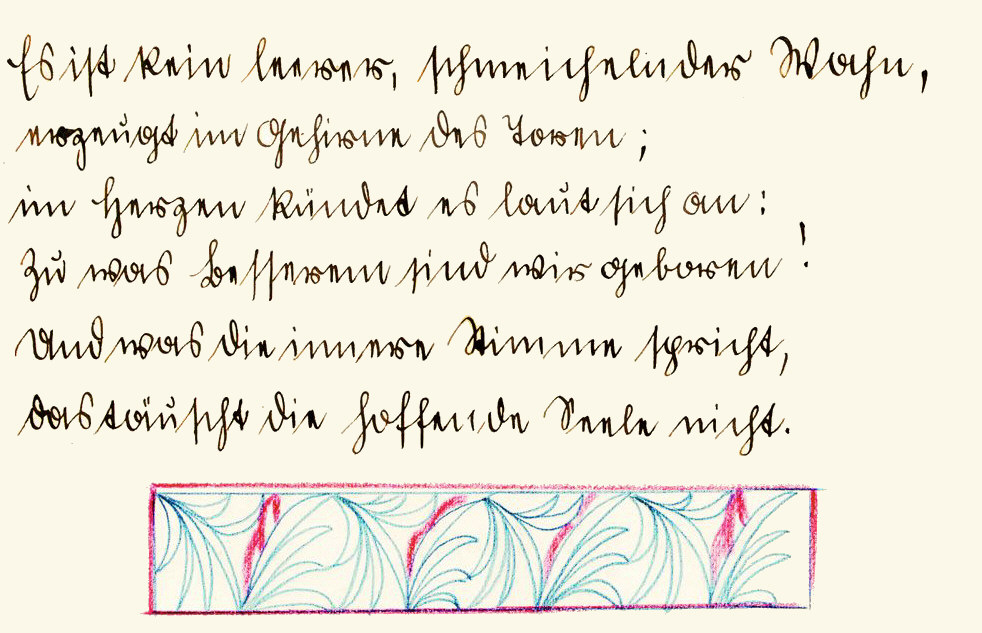 Es ist kein leerer, schmeichelnder Wahn,
erzeugt im Gehirne des Toren;
im Herzen kündet es laut sich an:
Zu was Besserem sind wir geboren!
Und was die innere Stimme spricht,
das täuscht die hoffende Seele nicht.